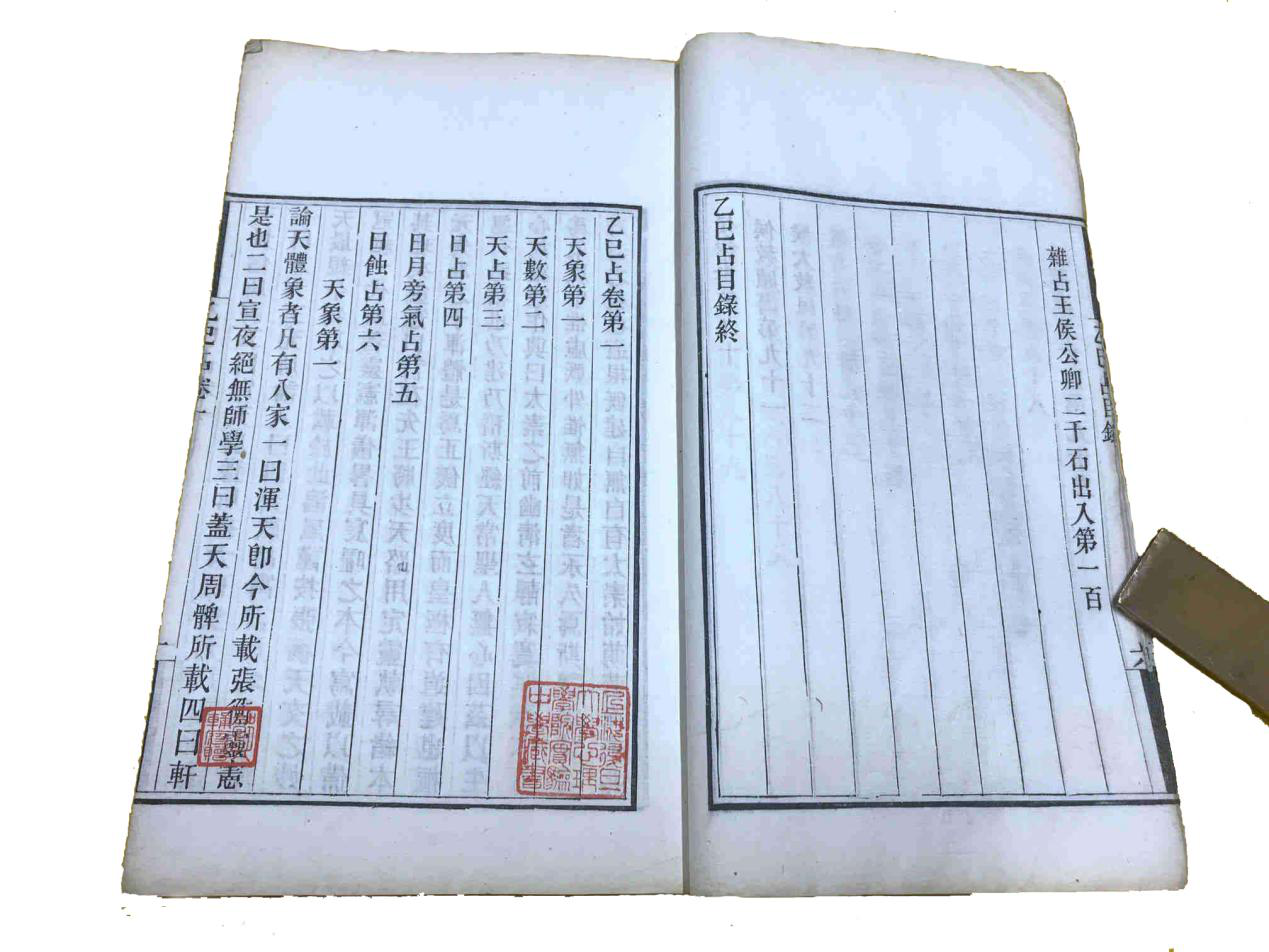 雜占王侯公卿二千石出入第一百
乙巳占目錄終
乙巳占目錄
六
乙巳占卷第一
天象第一
天數第二
天占第三
日占第四
日月旁氣占第五
日蝕占第六
天象第一
論天體象者凡有八家一曰渾天卽今所載張衡靈憲
是也二曰宣夜絕無師學三曰蓋天周髀所載四曰軒
乙巳占卷一
一